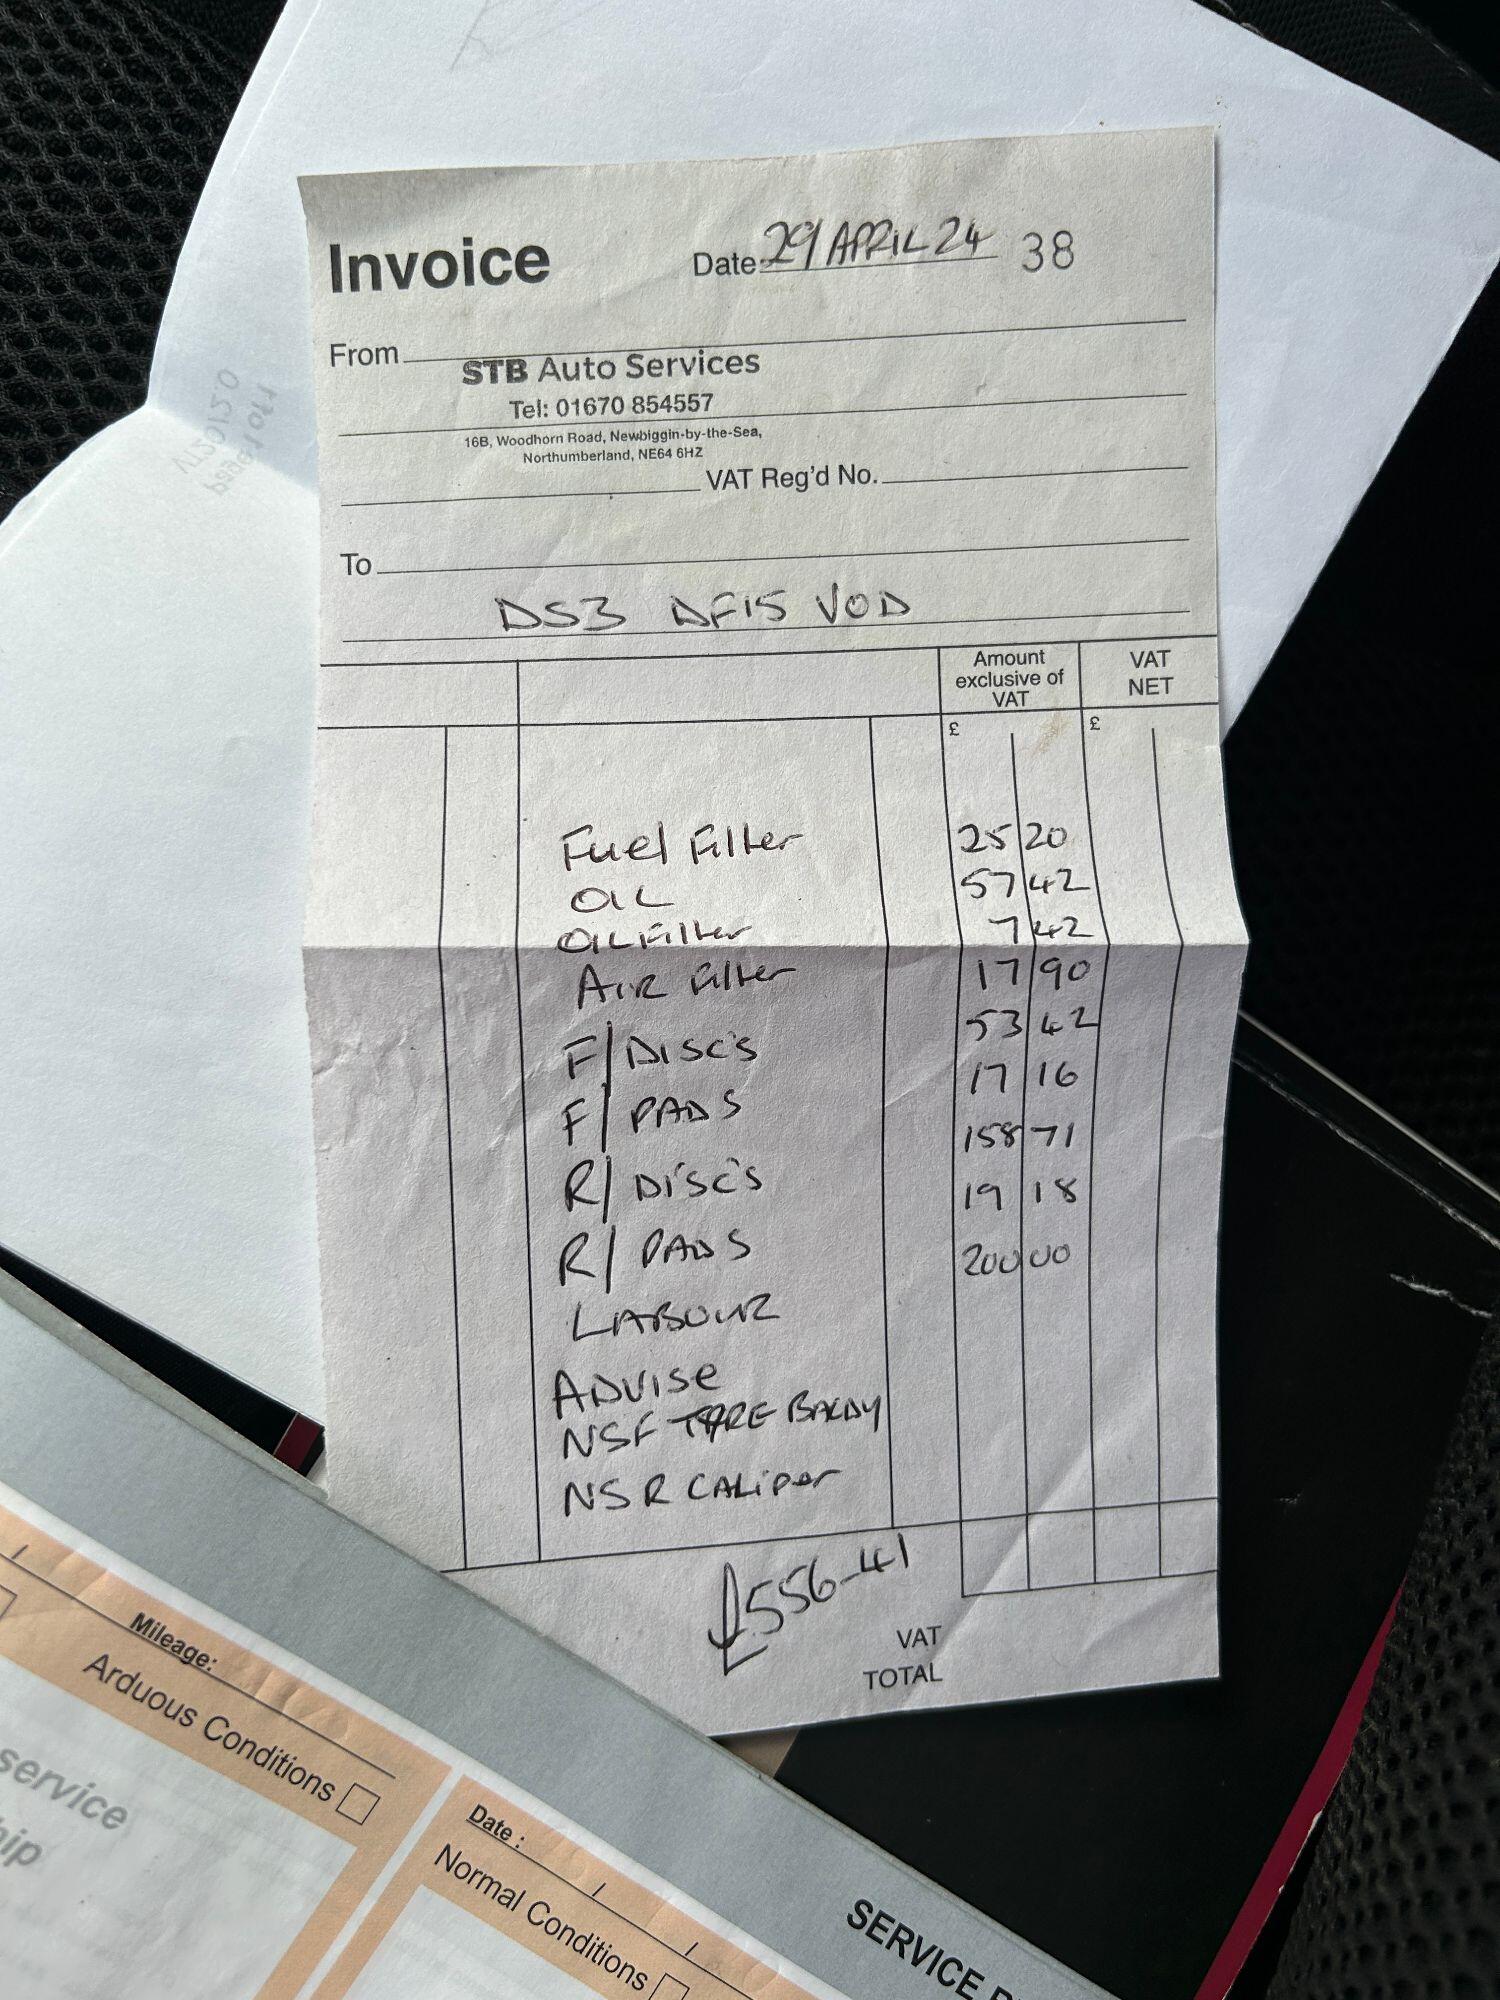 Invoice
Date 29/APRIL 24 38
From
STB Auto Services
Tel: 01670 854557
16B, Woodhorn Road, Newbiggin-by-the-Sea,
Northumberland, NE64 6HZ
VAT Reg'd No.
To
DS3 DF15 VOD
Amount exclusive of VAT
VAT NET
£ £
Fuel Filter 25 20
OIL 57 42
OIL Filter 7 42
AIR Filter 17 90
F/ DISC'S 53 42
F/ PADS 17 16
R/ DISC'S 158 71
R/ PADS 19 18
LABOUR 200 00
ADVISE
NSF TYRE BALDY
NSR CALIPER
£556-41
VAT
TOTAL
Mileage:
Arduous Conditions
service
hip
Date : / /
Normal Conditions
SERVICE